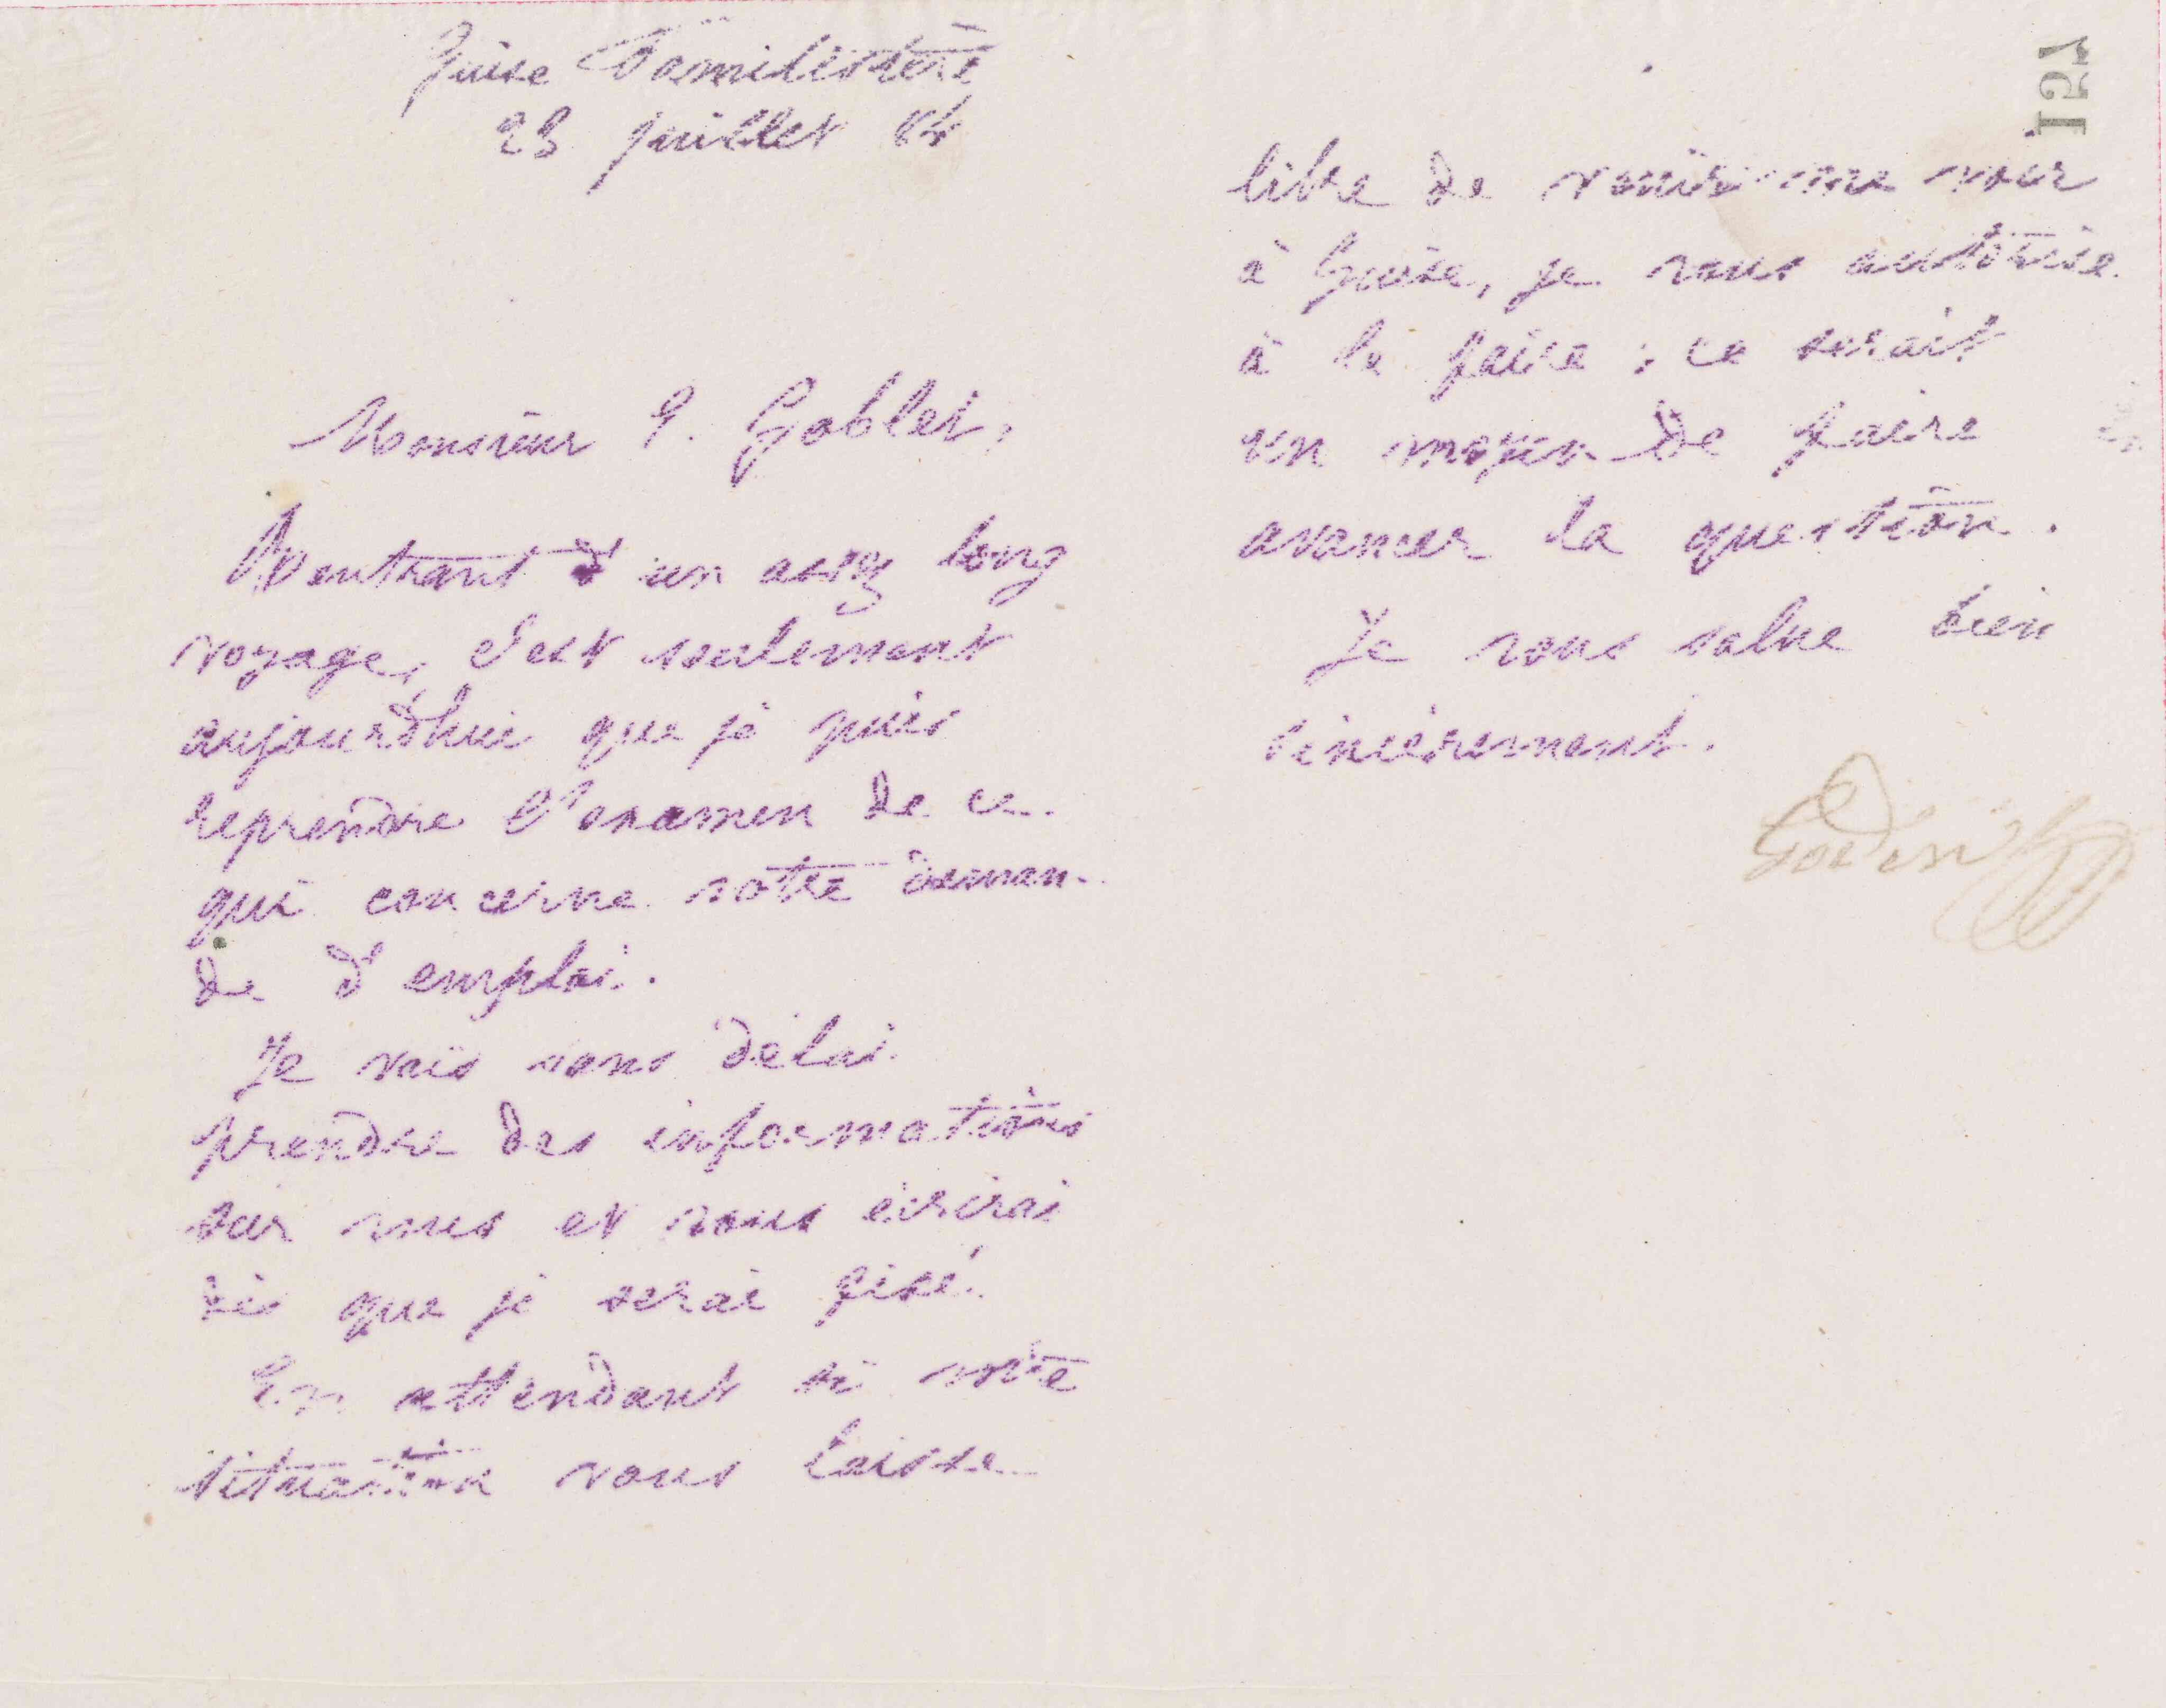 Guise Familistère
23 juillet 84
Monsieur E. Goblet,
Rentrant d'un assez long
voyage, c'est seulement
aujourd'hui que je puis
reprendre l'examen de ce
qui concerne votre deman-
de d'emploi.
Je vais sans délai
prendre des informations
sur vous et vous écrirai
dès que je serai fixé.
En attendant si votre
situation vous laisse
151
libre de venir me voir
à Guise, je vous autorise
à le faire ; ce serait
un moyen de faire
avancer la question.
Je vous salue bien
sincèrement.
Godin